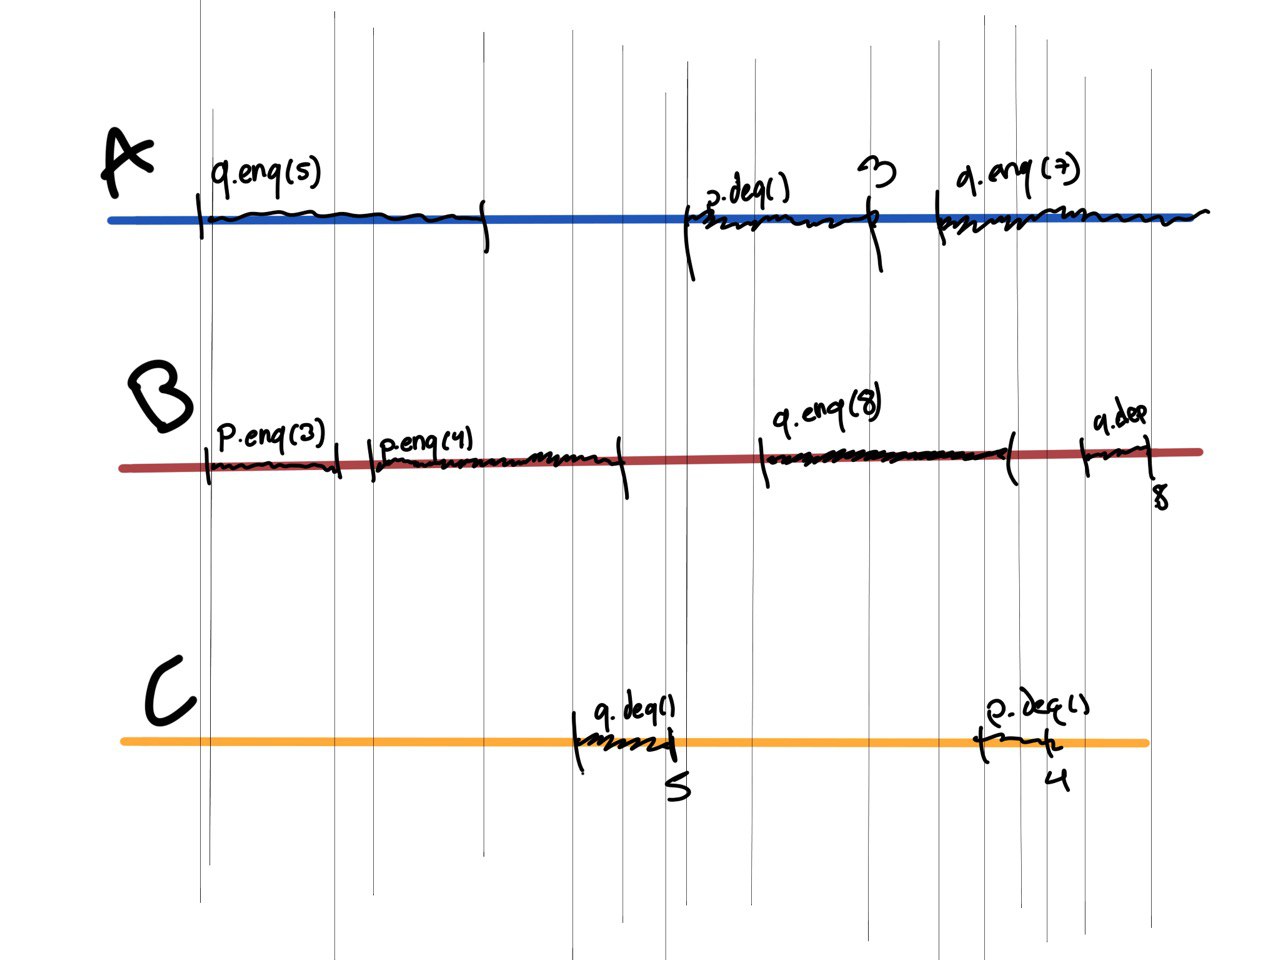 A
q.enq(5)
p.deq()
3
q.enq(7)
B
p.enq(3)
p.enq(4)
q.enq(8)
q.deq
8
C
q.deq()
5
p.deq()
4